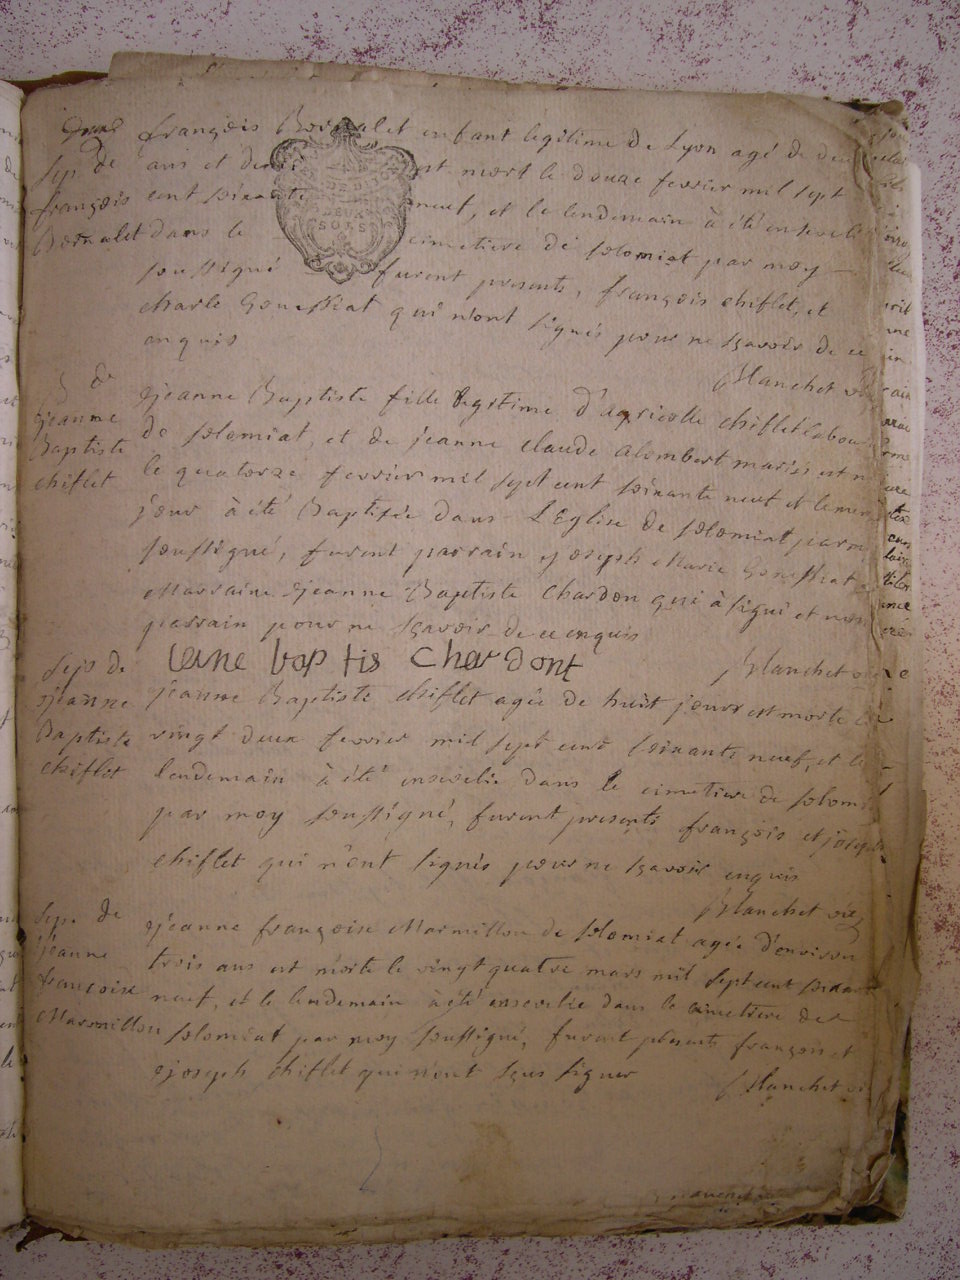 Sep de
françois
Bornalet
françois Bornalet enfant legitime de Lyon agé de deux
ans et demi est mort le douze fevrier mil sept
cent soixante neuf, et le lendemain à été enseveli
dans le cimetiere de solomiat par moy
soussigné furent presents, françois chiflet, et
charle Gouffiat qui n'ont signés pour ne sçavoir de ce
enquis
Blanchet
B de
jeanne
Baptiste
chiflet
jeanne Baptiste fille legitime d'agricolle chiflet
de solomiat, et de jeanne claude alombert mariés est
le quatorze fevrier mil sept cent soixante neuf et le
jour à été Baptisée dans l'Eglise de solomiat
soussigné, furent parrain joseph Marie Gouffiat
Marraine jeanne Baptiste Chardon qui à signé et
parrain pour ne sçavoir de ce enquis
iane baptis chardont
Blanchet
Sep de
jeanne
Baptiste
chiflet
jeanne Baptiste chiflet agée de huit jours est morte le
vingt deux fevrier mil sept cent soixante neuf, et le
lendemain à été ensevelie dans le cimetiere de
par moy soussigné, furent presents françois et joseph
chiflet qui n'ont signés pour ne sçavoir enquis
Blanchet vic
Sep. de
jeanne
francoise
Marmillon
jeanne françoise Marmillon de solomiat agée d'environ
trois ans est morte le vingt quatre mars mil sept cent soixante
neuf, et le lendemain à été ensevelie dans le cimetiere de
solomiat par moy soussigné, furent presents françois et
joseph chiflet qui n'ont sçus signer
Blanchet
DEUX
SOLS